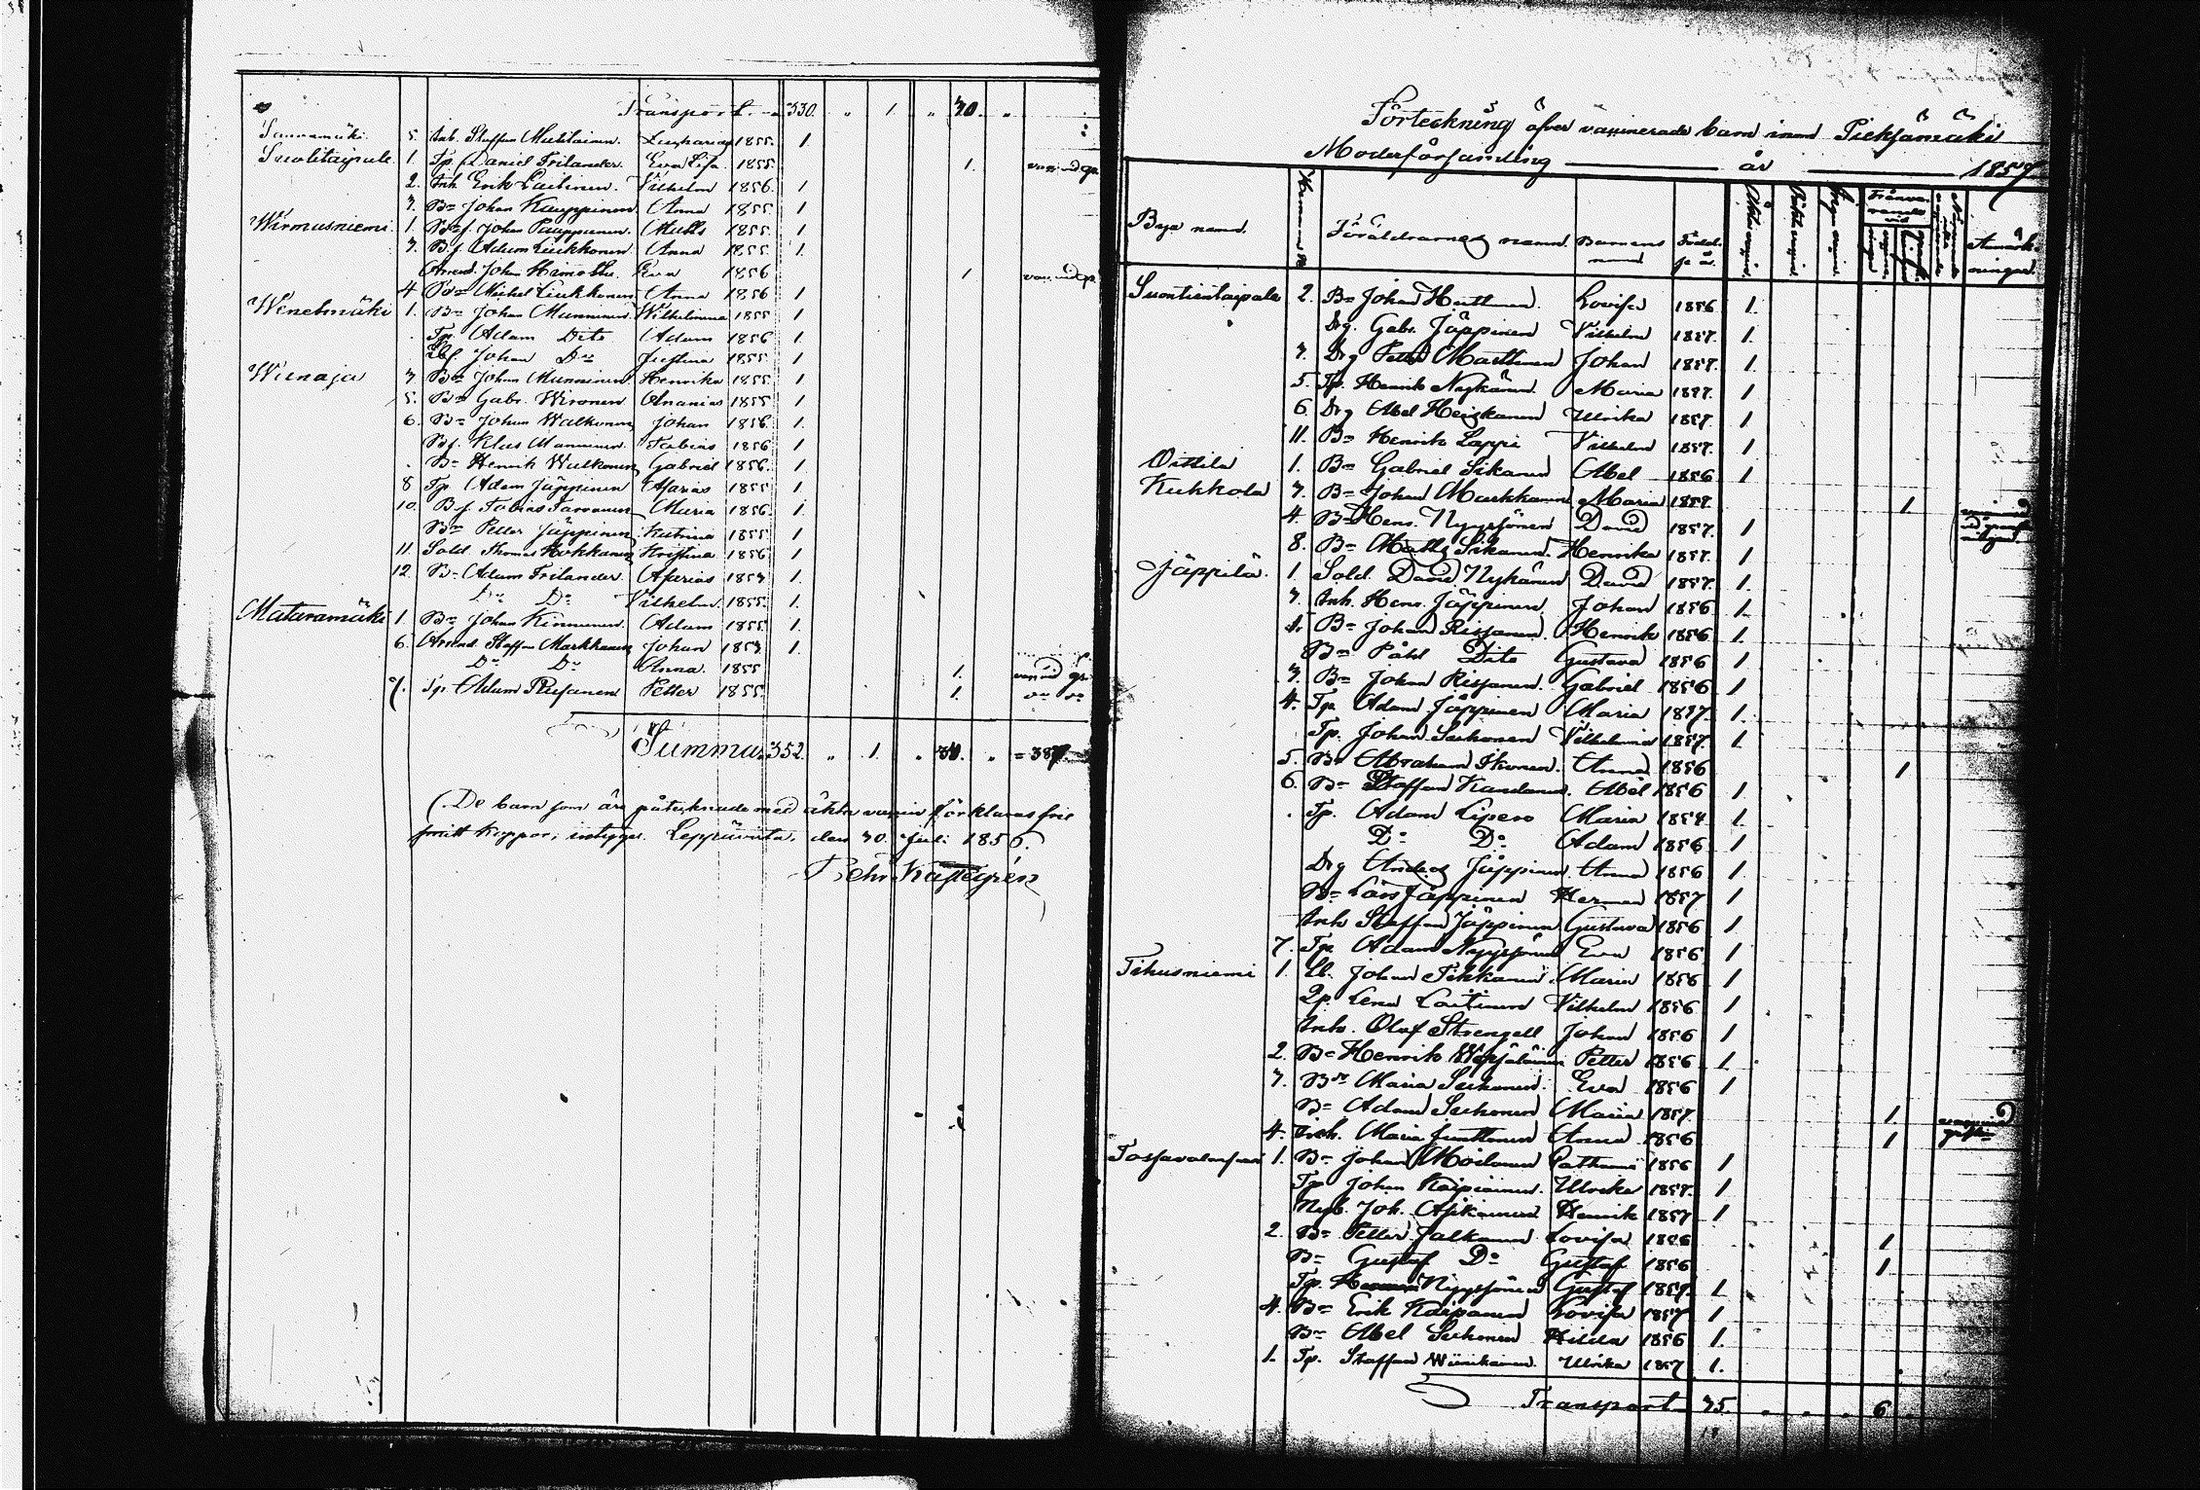 Transport. 330. " 1 " 30. "
Saunamäki. 5. Inh. Staffan Muhlainen. Zacharias 1855. 1
Suolitaipale. 1 Tp. Daniel Frilander. Eva Lisa 1855. 1.
2. Inh. Erik Laitinen. Vilhelm 1856. 1
3. Bn Johan Kauppinen. Anna 1855. 1
Wirmusniemi. 1 Bf. Johan Pauppunen. Matts 1855. 1
3. Bf. Adam Liukkonen Anna 1855. 1.
Arend. Johan Himotu. Eva 1856 1
4 Bn Michel Liukkonen Anna 1856 1
Wenetmäki 1. Bn Johan Munninen. Wilhelmina 1855 1
Tp. Adam Dito Adam 1856 1
Johan Do Justina 1855. 1
Wienaja 3. Bn Johan Munninen. Henrika 1855. 1
5. Bn Gabr. Wironen Ananias 1855 1
6. Bn Johan Walkonen Johan 1856. 1
Bf. Klas Manninen. Tobias 1856 1
Bn Henrik Walkonen Gabriel 1856. 1
8 Tp. Adam Jäppinen Asarias 1855 1
10. Bf. Tobias Tarvanen Maria 1856. 1.
Bn Petter Jäppinen Katrina 1855 1
11 Sold. Thomas Hokkanen Kristina 1856 1
12. Bn Adam Frilander. Asarias 1854 1.
Do Do Vilhelm. 1855. 1.
Mataramäki 1. Bn Johan Kinnunen. Adam 1855. 1.
6. Arend. Staffan Markkanen Johan 1854 1.
Do Do Anna. 1855 1.
7. Tp. Adam Pusanen Petter 1855. 1.
Summa. 352. " 1 " 34. " = 387.
(De barn som äro påteknade med äkta vaccin förklaras frie
smitt koppor, intygas. Leppävirta, den 30 Juli 1856.
Förteckning öfver vaccinerade barn inom Pieksämäki
Moderförsamling år 1857
Bya namn. Hemmans No Föräldrarnes namn. Barnens namn Födde år. Äkta vaccin. Frånvarande vid Anmärkningar.
Suontientaipale 2. Bn Johan Huttunen. Lovisa 1856 1.
Drg. Gabr. Jäppinen Vilhelm 1857. 1.
3. Drg Petter Marttinen Johan 1857. 1
5. Tp. Henrik Nykänen Maria 1857. 1
6. Drg Abel Heiskanen Ulrika 1857. 1
11. Bn Henrik Lappi Vilhelm 1857. 1
Oittila 1. Bn Gabriel Sikanen Abel 1856 1
Kukkola 3. Bn Johan Markkanen Maria 1857. 1
4. Bn Henr. Nyyssönen David 1857. 1
8. Bn Matts Sikanen. Henrika 1857. 1
Jäppilä. 1. Sold. David Nykänen David 1857. 1
3. Inh. Henr. Jäppinen. Johan 1856 1
Bn Johan Rissanen. Henrik 1856 1.
Bn Påhl Dito Gustava 1856 1
3. Bn Johan Rissanen. Gabriel 1856 1
4. Tp. Adam Jäppinen Maria 1857. 1.
Tp. Johan Suhonen Vilhelmina 1857. 1.
5. Bn Abraham Ikonen. Anna 1856 1
6. Bn Staffan Kandanen. Abel 1856 1
Tp. Adam Lipero Maria 1854 1
Do Do Adam 1856 1
Drg Anders Jäppinen Anna 1856 1
Bn Lars Jäppinen Herman 1857 1
Inh Staffan Jäppinen Gustava 1856 1
7. Tp. Adam Nyyssönen Eva 1856 1
Tihusniemi 1. Johan Tikkanen Maria 1856 1
Qp. Lena Laitinen Vilhelm 1856 1
Inh. Olof Strengell Johan 1856 1
2. Bn Henrik Petter 1856 1.
3. Maria Suhonen. Eva 1856 1
Bn Adam Suhonen Maria 1857. 1
4. Inh. Maria Junttonen Anna 1856 1
1. Bn Johan Moilanen 1856 1
Tp Johan Kaipiainen. Ulrika 1857. 1
Joh. Asikainen Henrik 1857 1
2. Bn Petter Jalkanen Lovisa 1856 1
Bn Gustaf Do Gustaf 1856 1
Tp. Nyyssönen Gustaf 1857. 1.
4. Bn Erik Kaipanen Lovisa 1857 1
Bn Abel Suhonen Hilda 1856 1.
1. Tp. Staffan Wiinikainen. Ulrika 1857 1.
Transport 35. 6